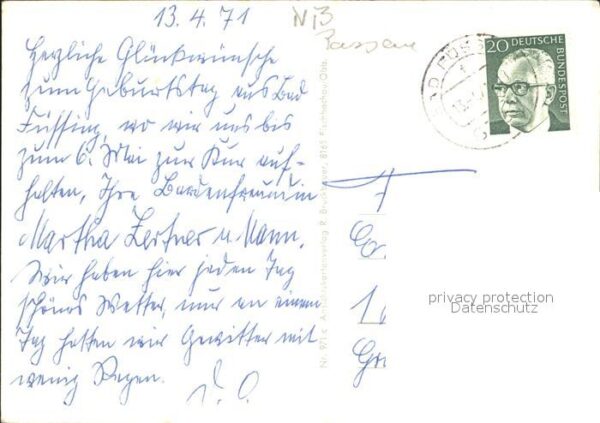 13.4.71
NB
Passau
Herzliche Glückwünsche
zum Geburtstag aus Bad
Füssing, wo wir uns bis
zum 6. Mai zur Kur auf-
halten, Ihre
Martha u. Mann.
Wir haben hier jeden Tag
schönes Wetter, nur an einem
Tag hatten wir Gewitter mit
wenig Regen.
20 DEUTSCHE
BUNDESPOST
privacy protection
Datenschutz